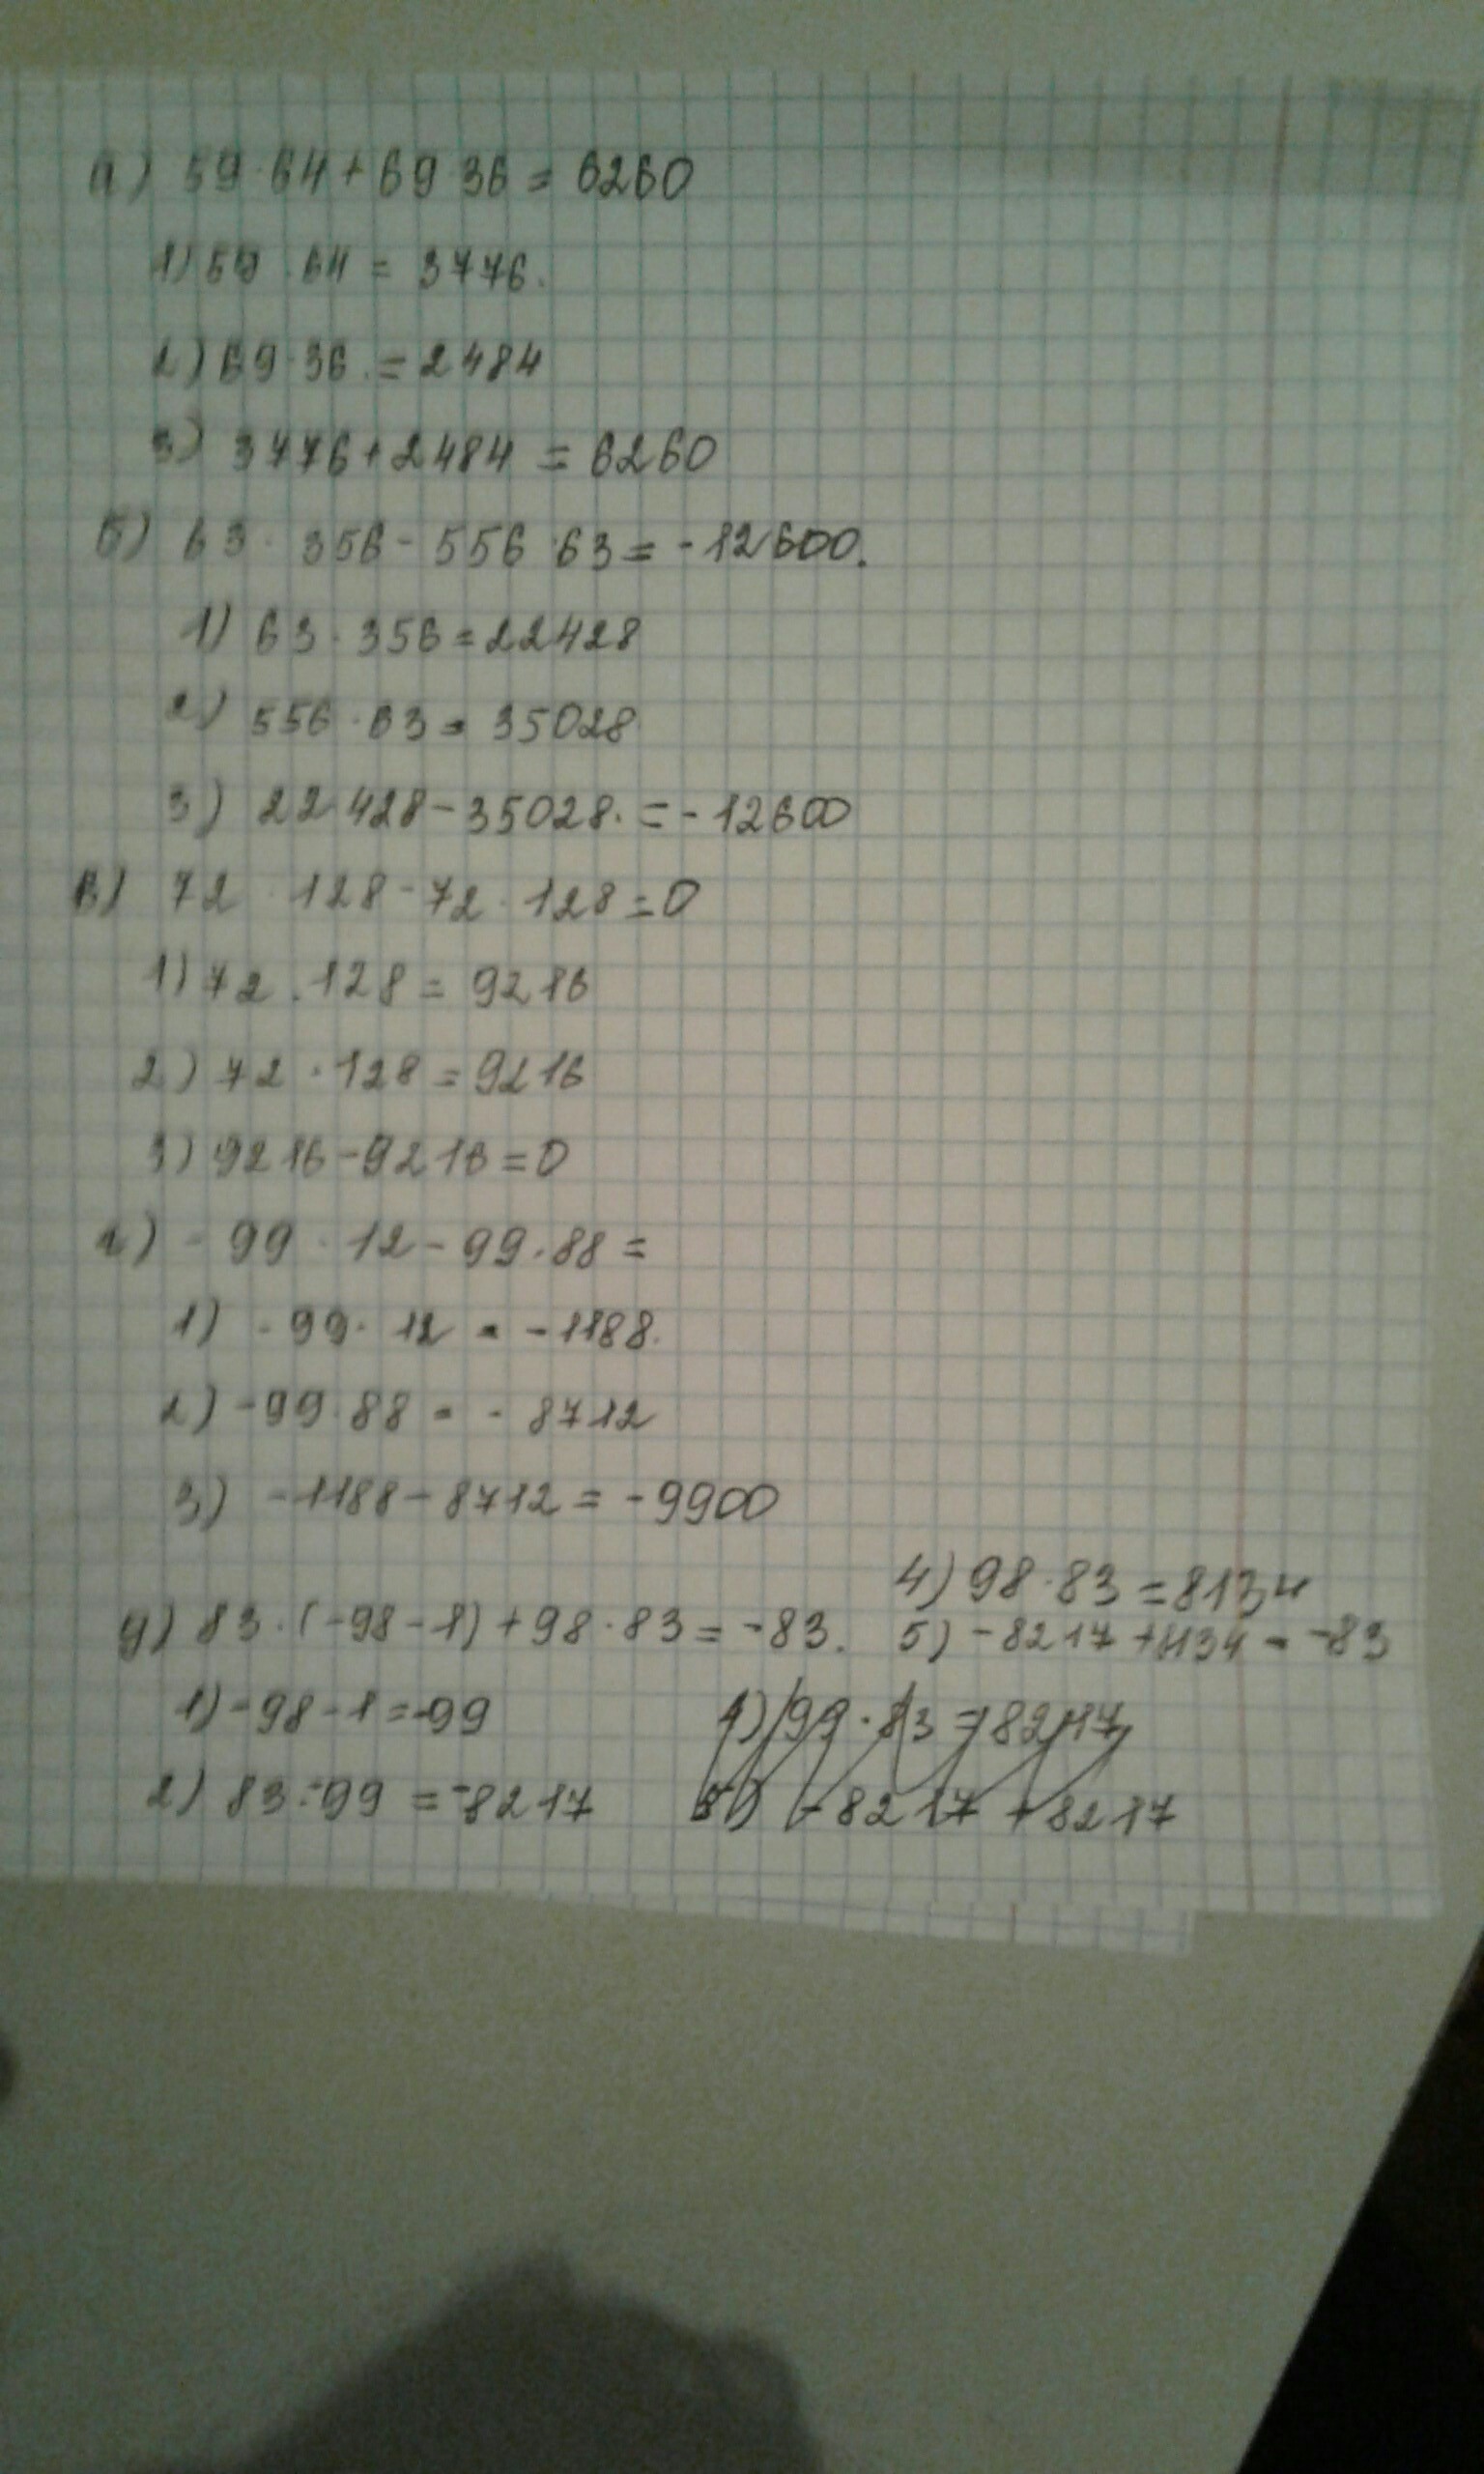 а) 59·64+69·36=6260
1) 59·64=3776.
2) 69·36.=2484
3) 3776+2484=6260
б) 63·356-556·63=-12600.
1) 63·356=22428
2) 556·63=35028
3) 22428-35028.=-12600
в) 72·128-72·128=0
1) 72·128=9216
2) 72·128=9216
3) 9216-9216=0
г) -99·12-99·88=
1) -99·12=-1188.
2) -99·88=-8712
3) -1188-8712=-9900
4) 98·83=8134
д) 83·(-98-1)+98·83=-83.
5) -8217+8134=-83
1) -98-1=-99
4) 99·83=8217
2) 83·-99=-8217
5) -8217+8217